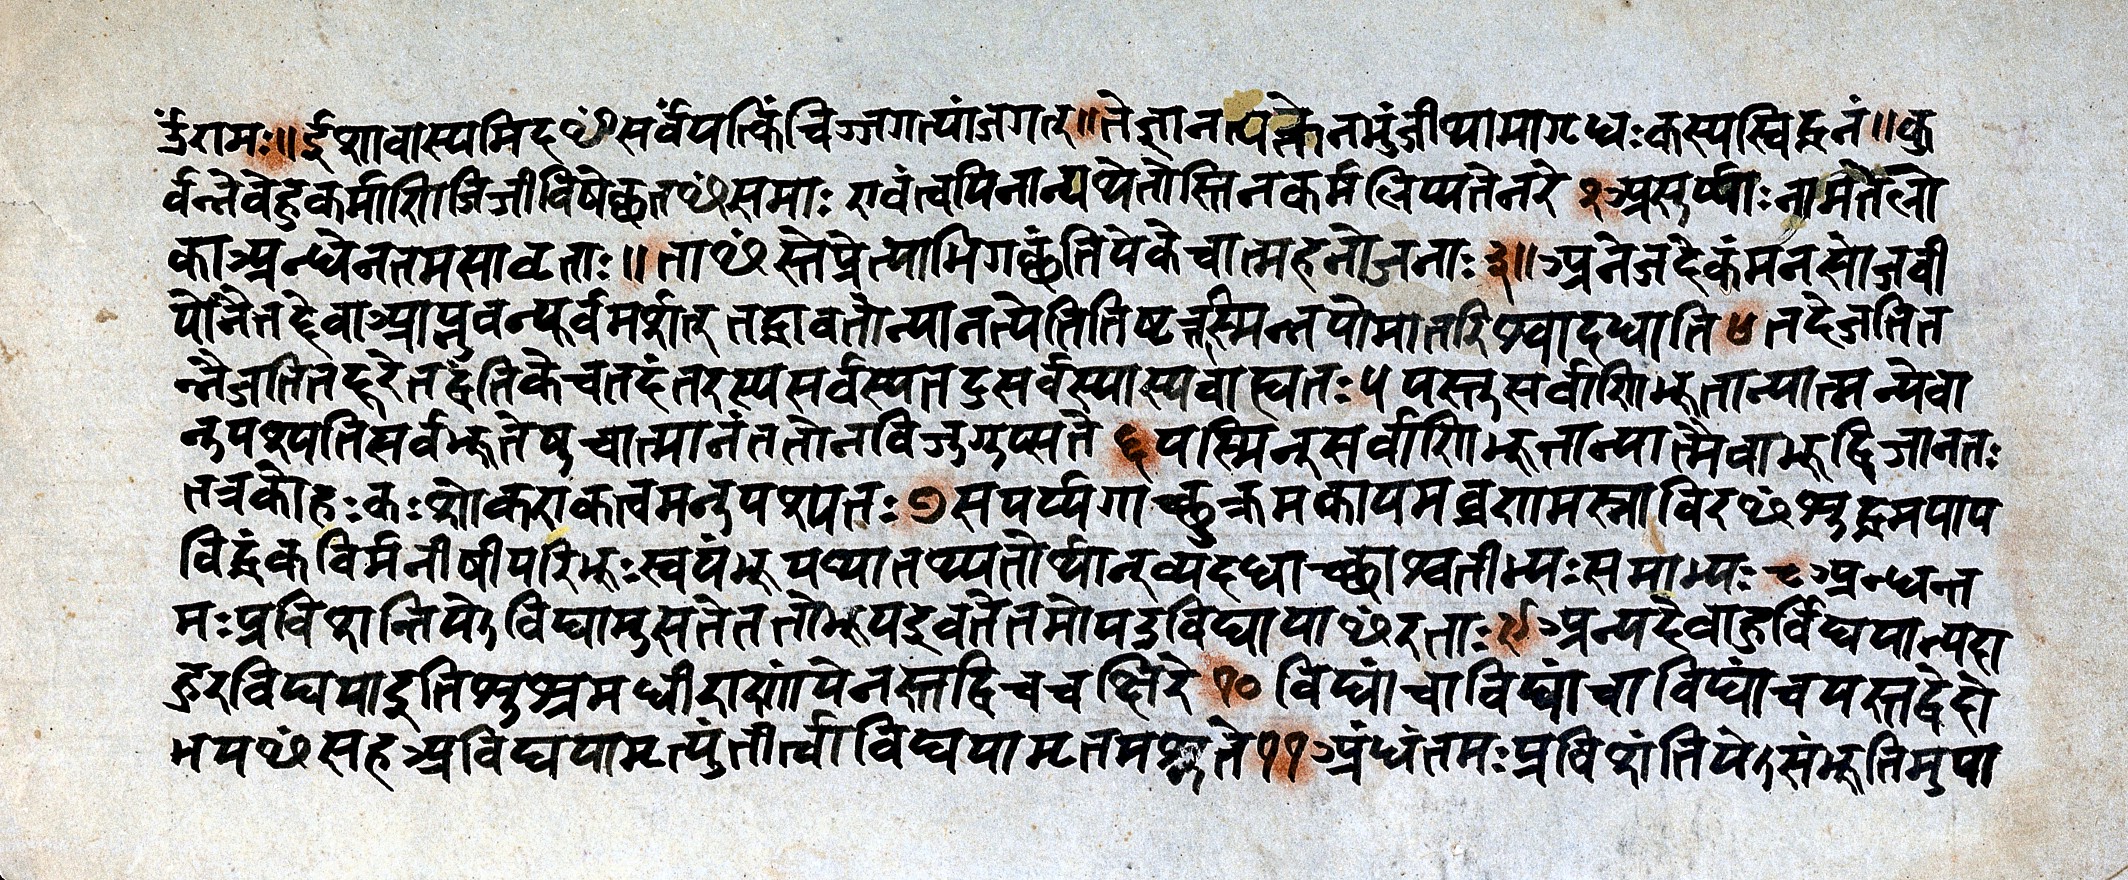 ॐरामः॥ईशावास्यमिदꣳसर्वंयत्किंचिज्जगत्यांजगत्॥तेज्ञानत्यक्तेनभुंजीथामागृधःकस्यस्विद्धनं॥कु
र्वन्नेवेहकर्माणिजिजीविषेच्छतꣳसमाः एवंत्वयिनान्यथेतोस्तिनकर्मलिप्यतेनरे २असुर्य्याःनामतेलो
काअन्धेनतमसावृताः॥ताꣳस्तेप्रेत्याभिगच्छंतियेकेचात्महनोजनाः३॥अनेजदेकंमनसोजवी
योनैतद्देवाआप्नुवन्पूर्वमर्शत् तद्धावतोन्यानत्येतितिष्टत्तस्मिन्नपोमातरिश्वादधाति ४ तदेजतित
न्नैजतितद्दूरेतद्वंतिकेचतदंतरस्यसर्वस्यतदुसर्वस्यास्यवाह्यतः५ यस्तुसर्वाणिभूतान्यात्मन्येवा
नुपश्यतिसर्वभूतेषुचात्मानंततोनविजुगुप्सते ६यस्मिन्सर्वाणिभूतान्यात्मैवाभूद्विजानतः
तत्रकोहःकःशोकएकत्वमनुपश्यतः७सपर्य्यगाच्छुक्रमकायमव्रणमस्नाविरꣳशुद्धमपाप
विद्धंकविर्मनीषीपरिभूःस्वयंभूयथातथ्यतोर्थान्व्यदधाच्छाश्वतीभ्यःसमाभ्यः ८अन्धन्त
मःप्रविशन्तियेऽविद्यामुसतेततोभूयइवतेतमोयउविद्यायाꣳरताः९अन्यदेवाहुर्विद्ययान्यदा
हुरविद्ययाइतिशुश्रमधीराणांयेनस्तद्विचचक्षिरे १० विद्यांचाविद्यांचाविद्यांचयस्तद्वेदो
भयꣳसहअविद्ययामृत्युंतीर्त्वाविद्ययामृतमश्नुते११अंधंतमःप्रविशंतियेऽसंभूतिमुपा